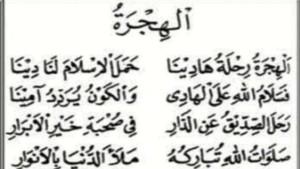 اَلْهِجْرَةُ
اَلْهِجْرَةُ رِحْلَةُ هَادِينَا حَمَلَ الْاِسْلَامَ لَنَا دِينًا
فَسَلَامُ اللهِ عَلَى الْهَادِى وَالْكَوْنُ يُرَدِّدُ آمِينَا
رَحَلَ الصِّدِّيقُ عَنِ الدَّارِ فِى صُحْبَةِ خَيْرِ الْاَبْرَارِ
صَلَوَاتُ اللهِ تُبَارِكُهُ مَلَأَ الدُّنْيَا بِالْاَنْوَارِ